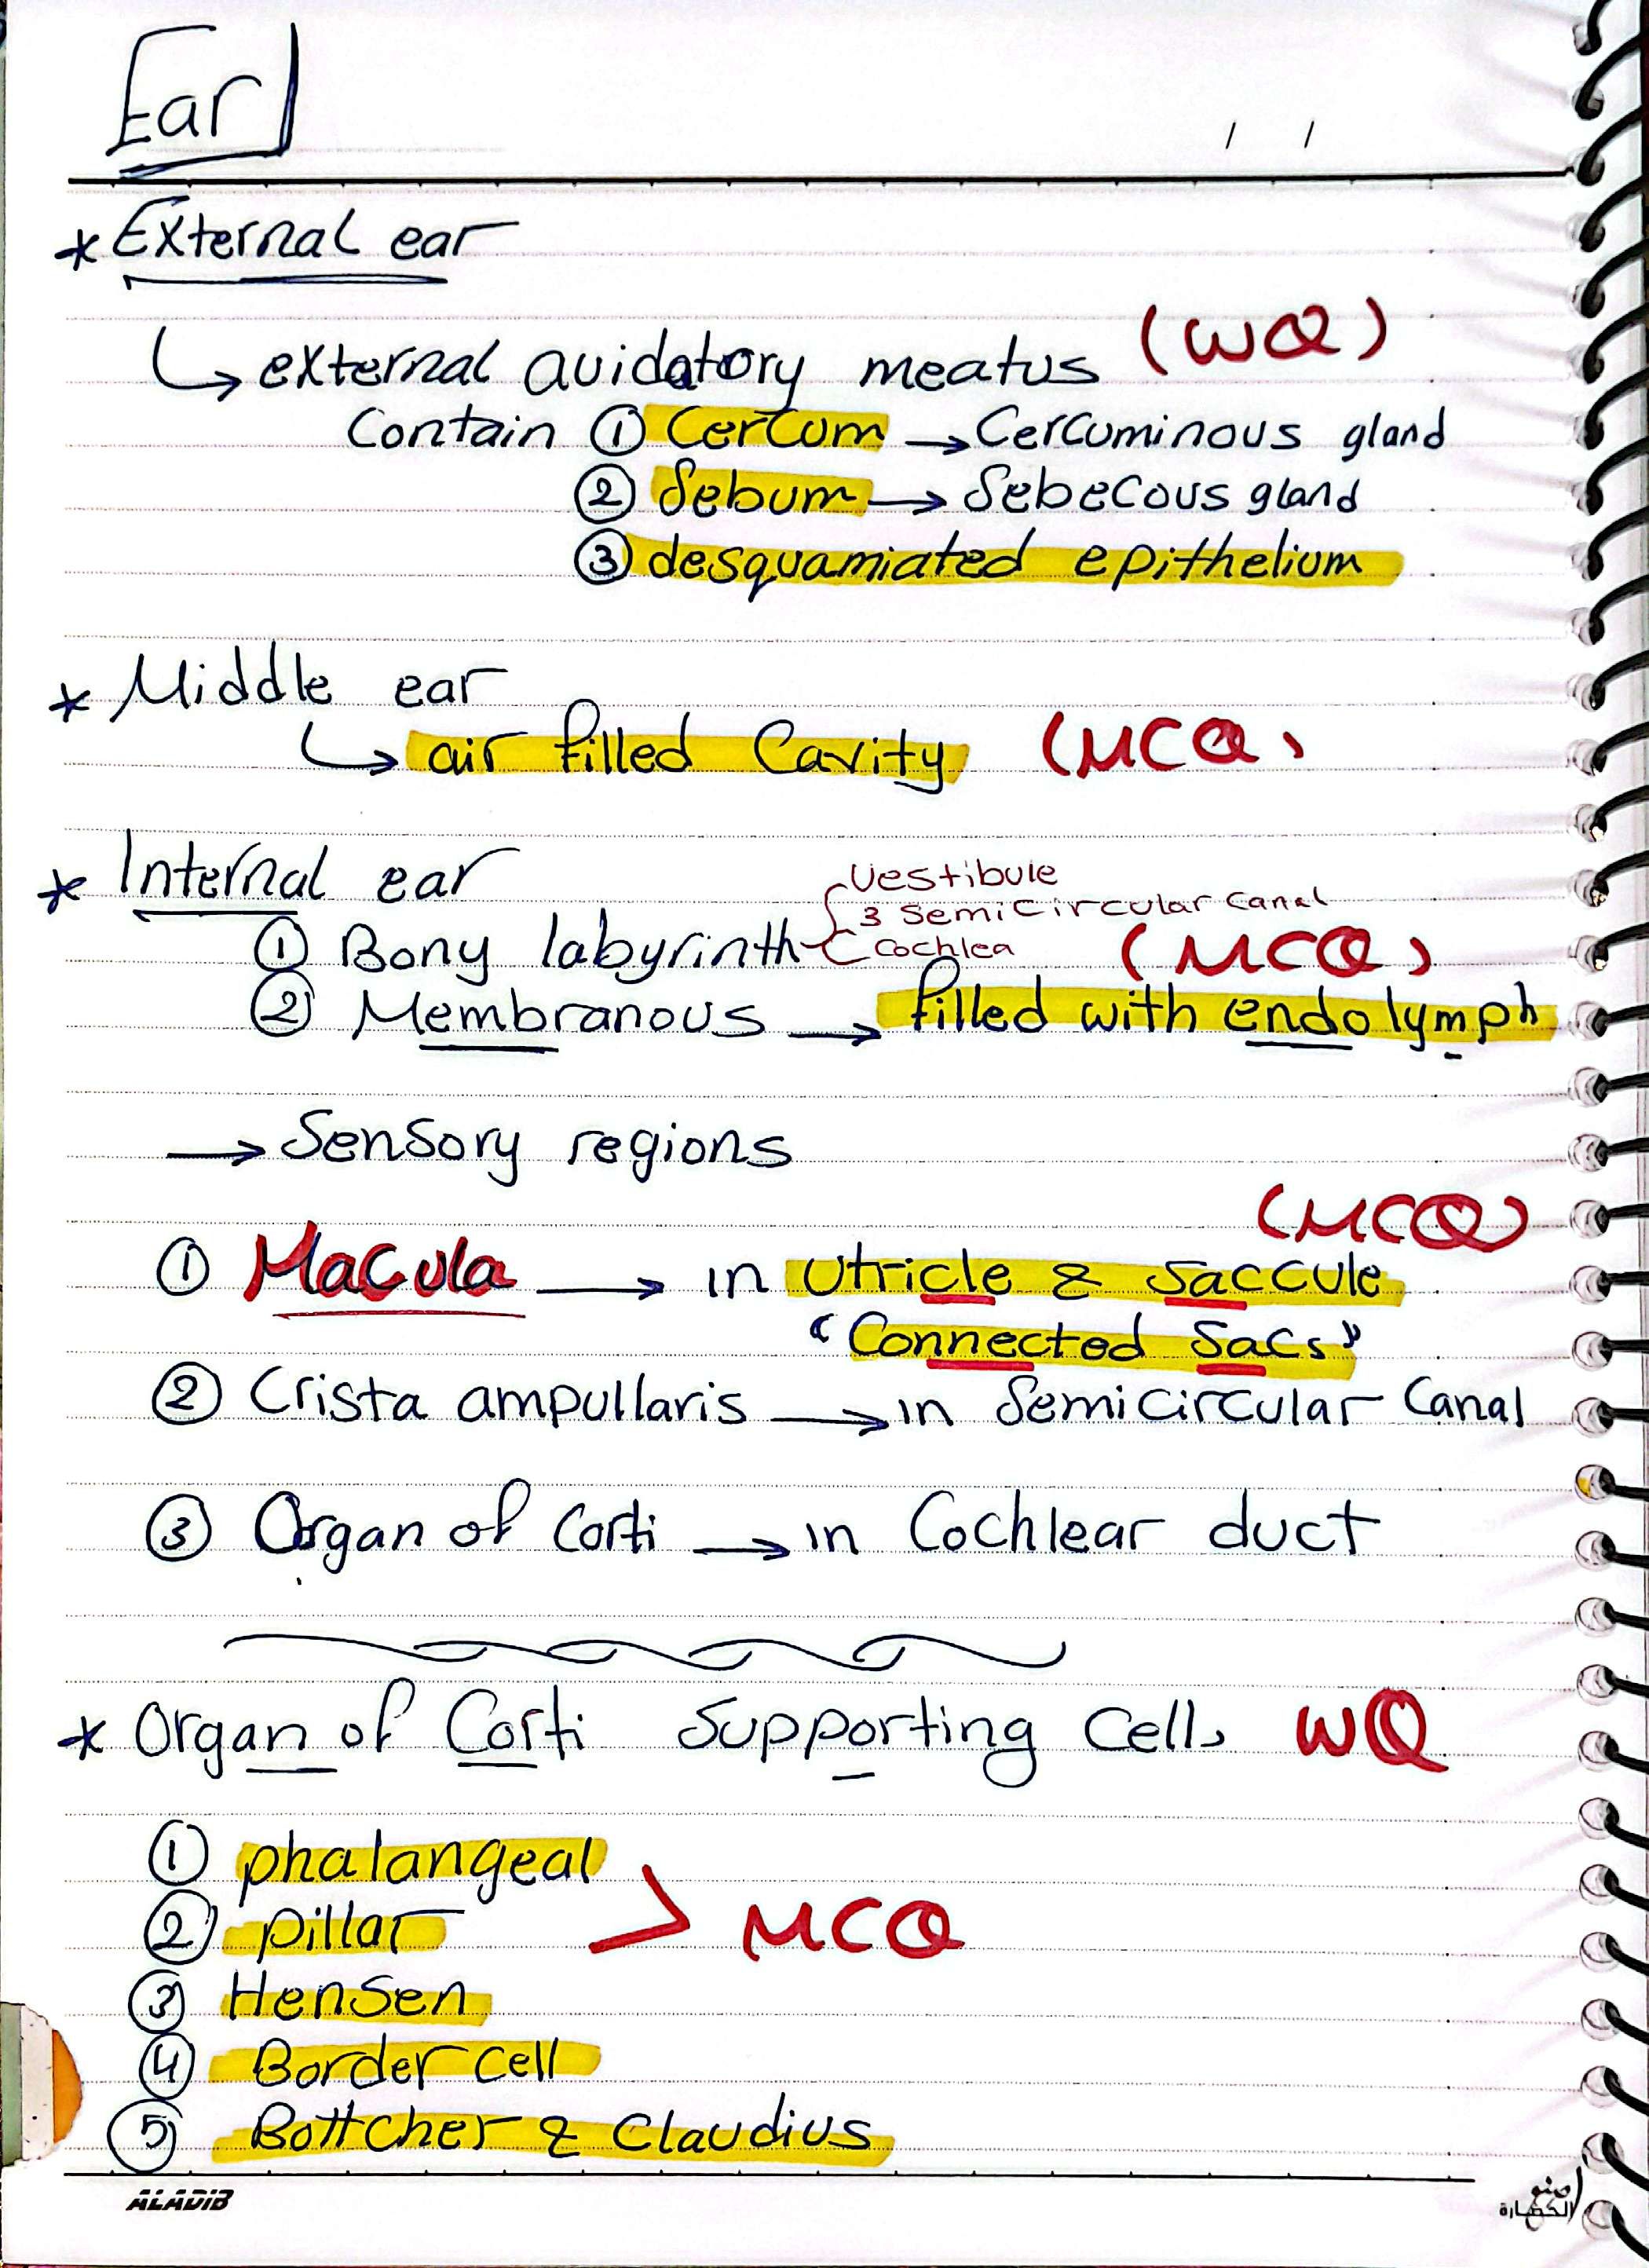 Ear
/ /
* External ear
↳ external auidatory meatus (WQ)
Contain ① Cercum → Cercuminous gland
② Sebum → Sebecous gland
③ desquamiated epithelium
* Middle ear
↳ air filled Cavity (MCQ)
* Internal ear
① Bony labyrinth { Vestibule
3 Semicircular Canal
Cochlea (MCQ)
② Membranous → filled with endolymph
→ Sensory regions
(MCQ)
① Macula → in Utricle & Saccule
"Connected Sacs"
② Crista ampullaris → in Semicircular Canal
③ Organ of Corti → in Cochlear duct
* Organ of Corti Supporting Cells WQ
① phalangeal
② pillar > MCQ
③ Hensen
④ Border cell
⑤ Bottcher & Claudius
ALADIB